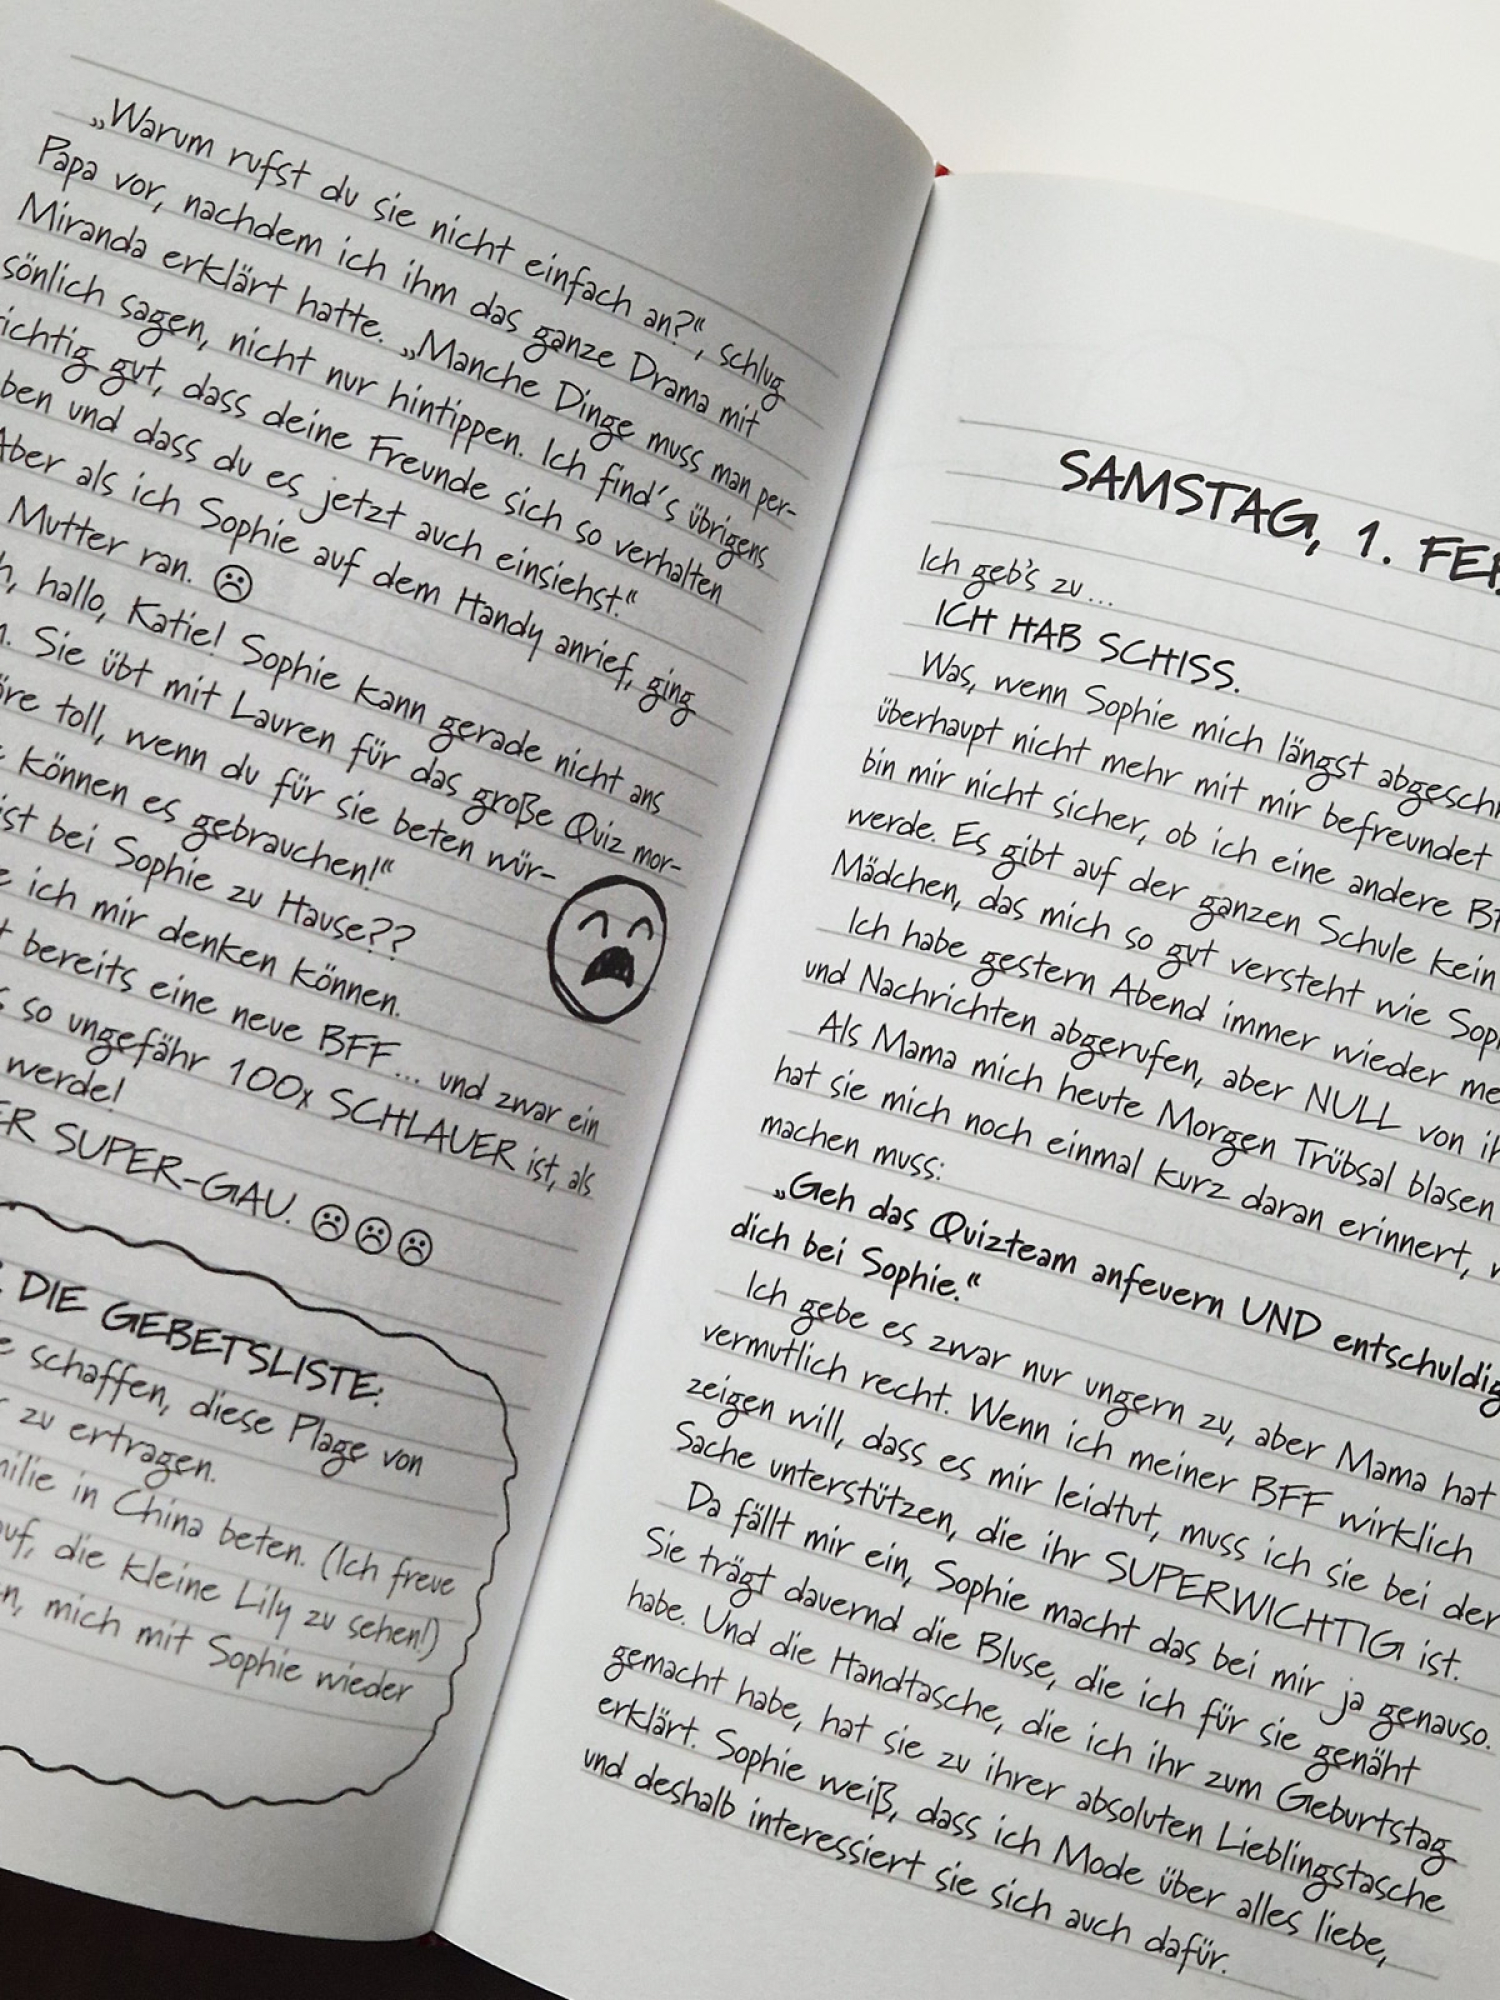 „Warum rufst du sie nicht einfach an?“, schlug
Papa vor, nachdem ich ihm das ganze Drama mit
Miranda erklärt hatte. „Manche Dinge muss man per-
sönlich sagen, nicht nur hintippen. Ich find's übrigens
richtig gut, dass deine Freunde sich so verhalten
und dass du es jetzt auch einsiehst.“
Aber als ich Sophie auf dem Handy anrief, ging
Mutter ran.
hallo, Katie! Sophie kann gerade nicht ans
Sie übt mit Lauren für das große Quiz mor-
toll, wenn du für sie beten wür-
können es gebrauchen!“
bei Sophie zu Hause??
ich mir denken können.
bereits eine neue BFF... und zwar ein
so ungefähr 100x SCHLAUER ist, als
werde!
SUPER-GAU.
DIE GEBETSLISTE:
schaffen, diese Plage von
zu ertragen.
in China beten. (Ich freue
die kleine Lily zu sehen!)
mich mit Sophie wieder
SAMSTAG, 1.
Ich geb's zu ...
ICH HAB SCHISS.
Was, wenn Sophie mich längst
überhaupt nicht mehr mit mir befreundet
bin mir nicht sicher, ob ich eine andere
werde. Es gibt auf der ganzen Schule kein
Mädchen, das mich so gut versteht wie
Ich habe gestern Abend immer wieder
und Nachrichten abgerufen, aber NULL von
Als Mama mich heute Morgen Trübsal blasen
hat sie mich noch einmal kurz daran erinnert,
machen muss:
„Geh das Quizteam anfeuern UND entschuldig
dich bei Sophie.“
Ich gebe es zwar nur ungern zu, aber Mama hat
vermutlich recht. Wenn ich meiner BFF wirklich
zeigen will, dass es mir leidtut, muss ich sie bei der
Sache unterstützen, die ihr SUPERWICHTIG ist.
Da fällt mir ein, Sophie macht das bei mir ja genauso.
Sie trägt dauernd die Bluse, die ich für sie genäht
habe. Und die Handtasche, die ich ihr zum Geburtstag
gemacht habe, hat sie zu ihrer absoluten Lieblingstasche
erklärt. Sophie weiß, dass ich Mode über alles liebe,
und deshalb interessiert sie sich auch dafür.